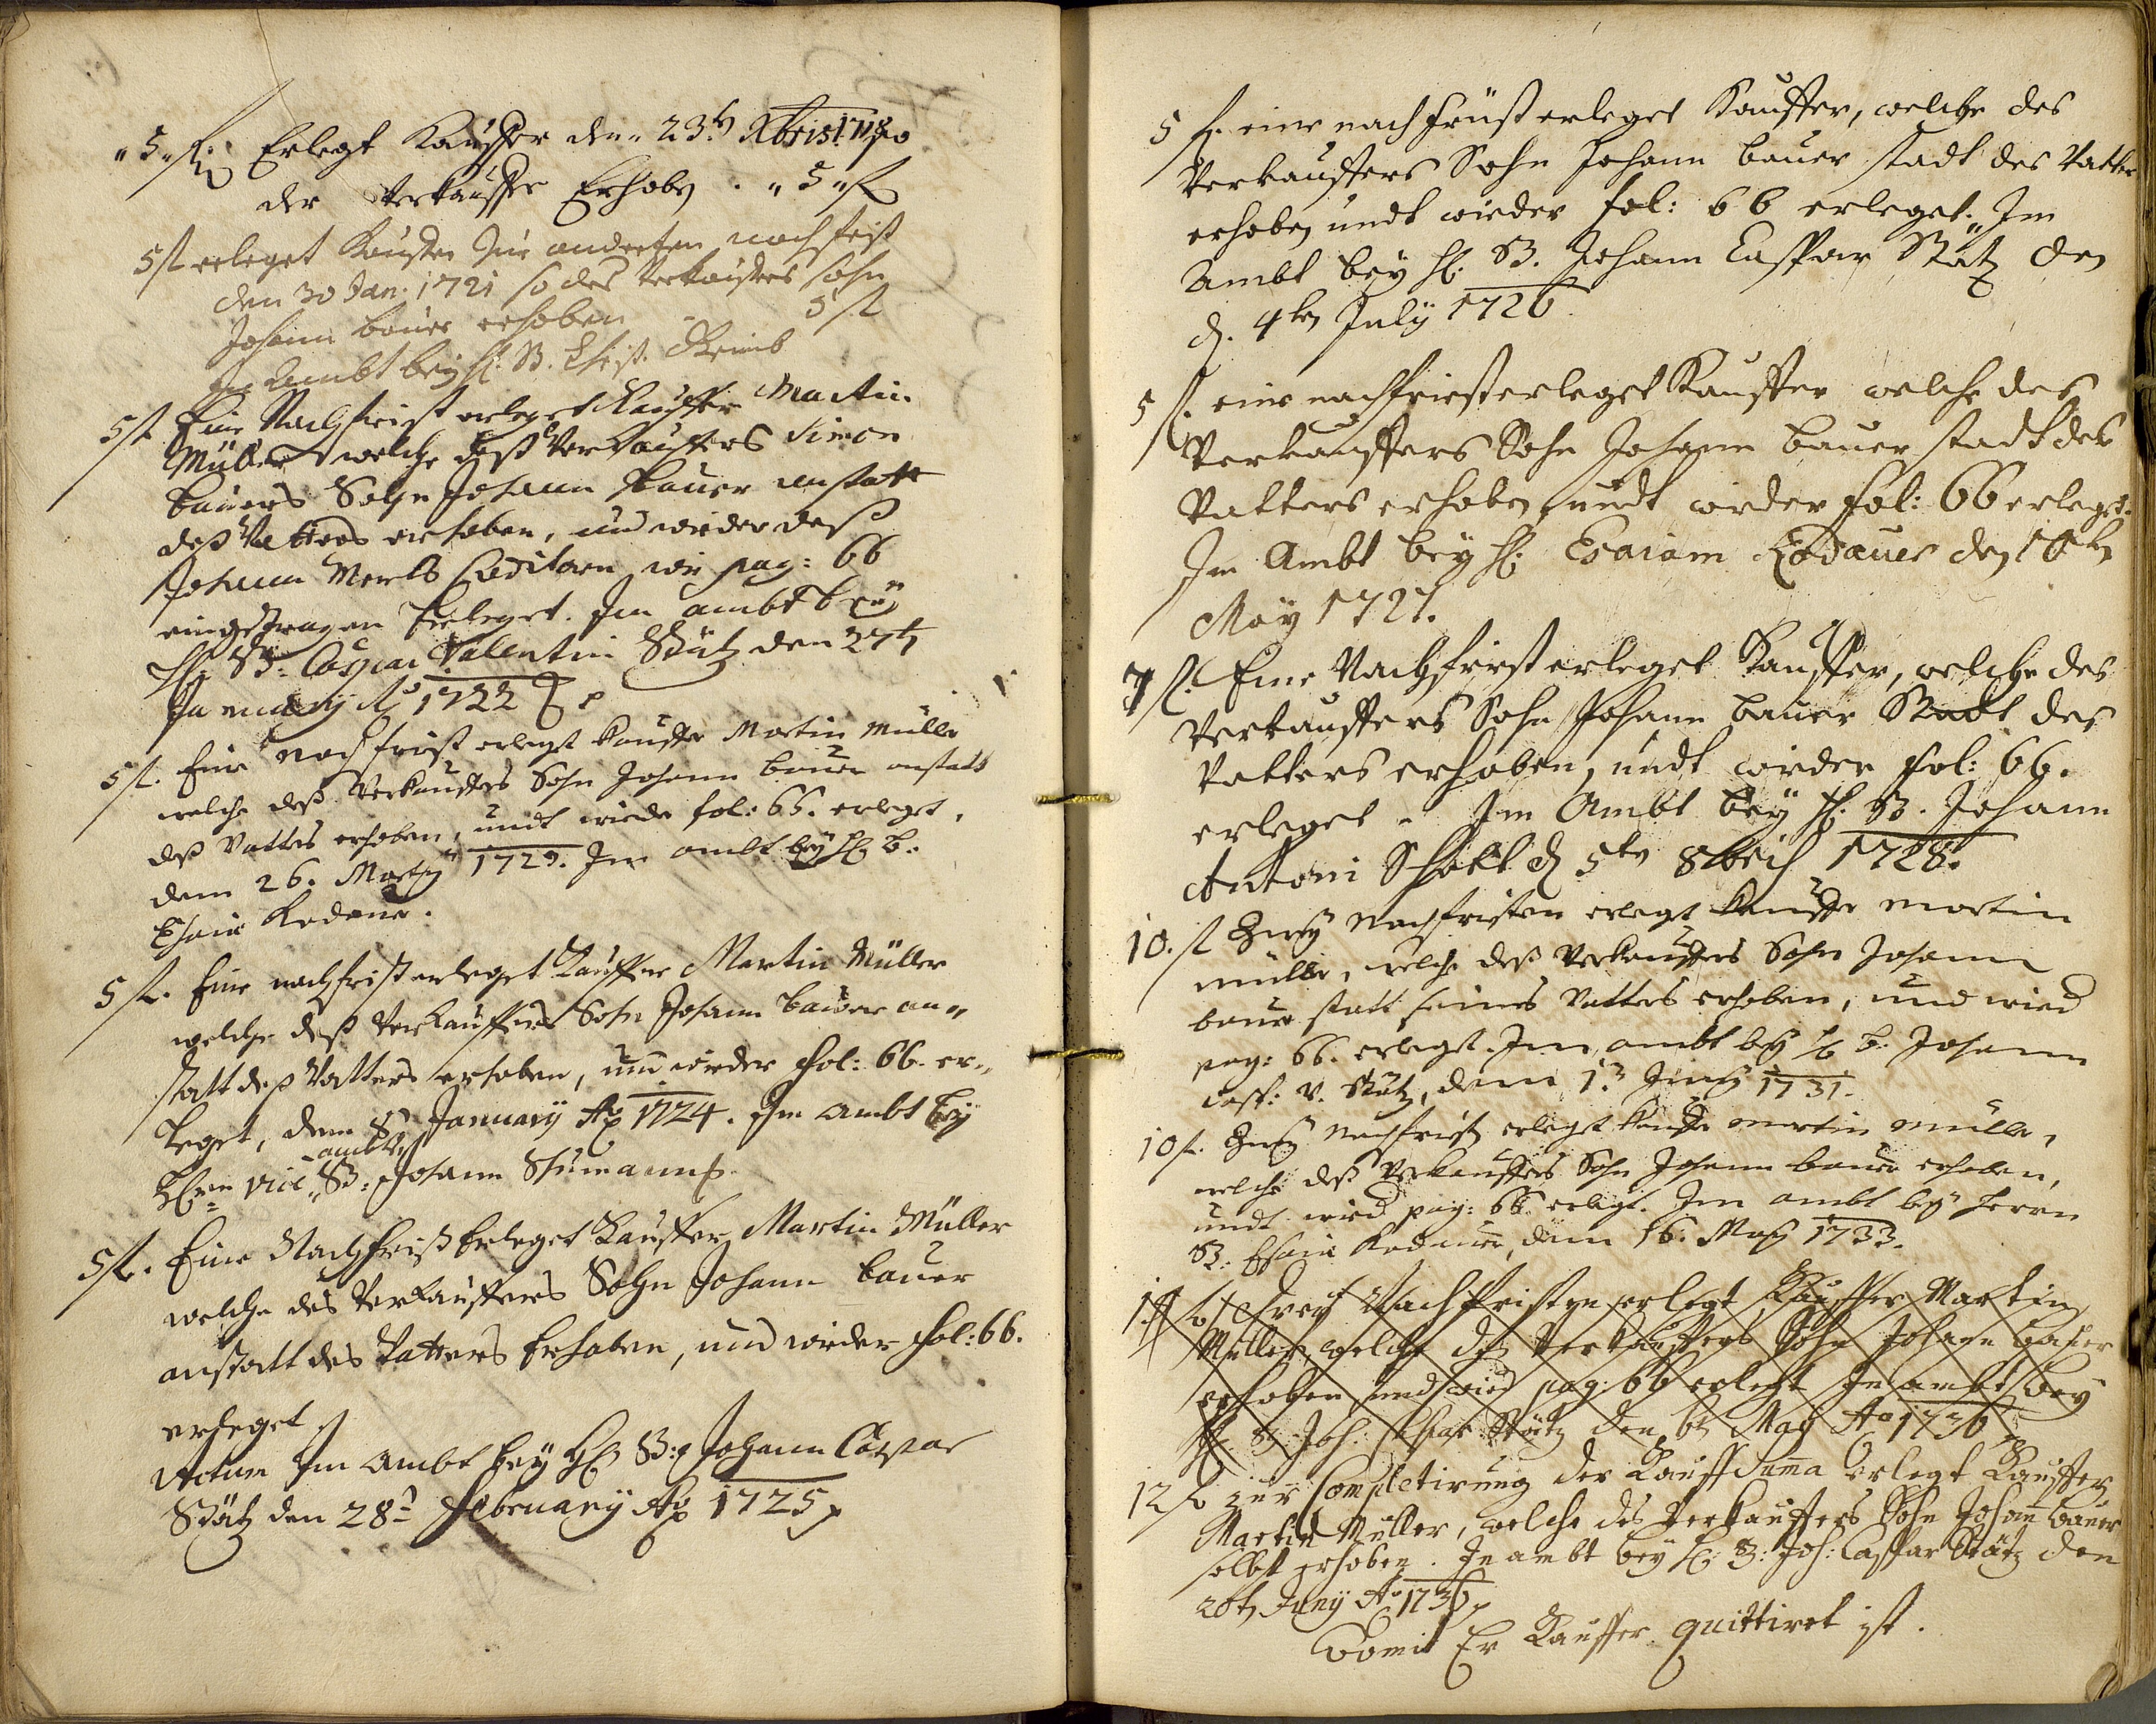 „ 5 „ fl: Erlegt Kauffer den 23t Xbris 1720
der Verkauffer Erhobn . „ 5 „ fl
5 fl erleget Kauffer Zur anderten nachfrist
den 30 Jan: 1721 so des Verkauffers sohn
Johann Bauer erhoben - 5 fl
Im Ambt bey H: B. Christ:
5 fl. Eine Nachfrist erleget Kauffer Martin
Müller welche deß Verkauffers Simon
Bauers Sohn Johann Bauer anstatt
deß Vatters erhoben, und wieder deß
Johann Creditorn wie pag: 66
eingetragen Erleget. Im ambt bey
H: B: Caspar Valentin Stätz den 27t
January Ao 1722
5 fl. Eine nachfrist erlegt Kauffer Martin Müller
welche deß Verkauffers Sohn Johann Bauer anstatt
deß Vatters erhoben, undt wieder fol: 66. erleget,
dem 26. Martij 1723. Im ambt bey H: B:
Esaia Kodauer.
5 fl. Eine nachfrist erleget Kauffer Martin Müller
welche deß Verkauffers Sohn Johann Bauer an„
statt deß Vatters erhoben, und wieder fol: 66. er„
leget, dem 8 January Ao 1724. Im Ambt bey
Herrn vice ambts B: Johann Schumann
5 fl. Eine Nachfrist Erleget Kauffer Martin Müller
welche des Verkauffers Sohn Johann Bauer
anstatt des Vatters Erhoben, und wieder fol: 66.
erleget
Actum Im Ambt bey H: B: Johann Caspar
Stätz den 28t February Ao 1725
5 fl. eine nach früst erleget Kauffer, welche des
Verkauffers Sohn Johann Bauer stadt des Vatter
erhoben undt wieder fol: 66 erleget. Im
Ambt bey H: B. Johann Casspar Stätz den
d. 4ten July 1726
5 fl. eine nachfriest erleget Kauffer welche des
Verkauffers Sohn Johann Bauer stadt des
Vatters erhoben undt wieder fol: 66 erleget.
Im Ambt bey H: Esaiam Kodauer den 10ten
May 1727.
7 fl. Eine Nachfrist erleget Kauffer, welche des
Verkauffers Sohn Johann Bauer Stadt des
Vatters erhoben, undt wieder fol: 66.
erleget. Im Ambt bey H: B. Johann
Antoni Schott d 5ten 8bris 1728.
10. fl Zwey Nachfristen erlegt Kauffer Martin
Müller, welche deß Verkauffers Sohn Johann
Bauer statt seines Vatters erhoben, und wied
pag: 66. erlegt. Im ambt bey H: B: Johann
Casp: V. Stätz, dem 13 Juny 1731.
10 fl. Zwey Nachfristen erlegt Kauffer Martin Müller,
welche deß Verkauffers Sohn Johann Bauer erhoben,
undt wied pag: 66 erlegt. Im ambt bey Herrn
B: Esaia Kodauer, dem 16. May 1733.
fl Drey Nachfristen erlegt Kauffer Martin
Müller, welche des Verkauffers Sohn Johann Bauer
erhoben und wied pag: 66 erlegt Im ambt bey
H: B: Joh: Caspar Stätz den 6t May Ao 1736
12 fl zur Completirung der Kauff Suma erlegt Kauffer
Martin Müller, welche des Verkauffers Sohn Johan Bauer
selbst erhoben. In ambt bey H: B: Joh: Caspar Stätz den
20t Juny Ao 1736
Womit Er Kauffer quittiret ist.